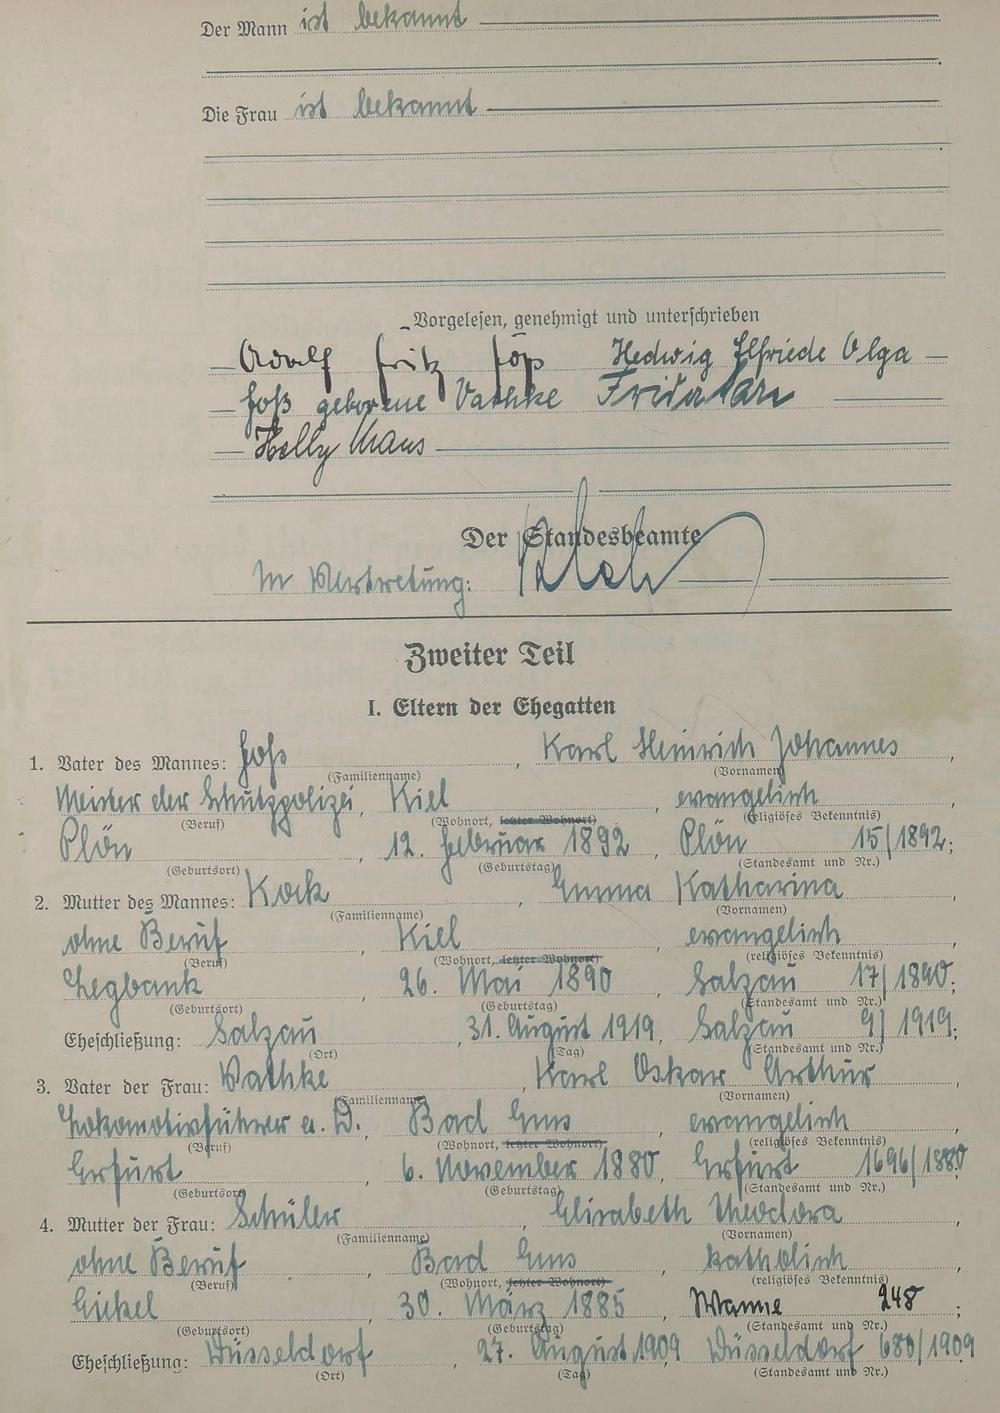 Der Mann ist bekannt
Die Frau ist bekannt
Vorgelesen, genehmigt und unterschrieben
Adolf Fritz Höß Hedwig Elfriede Olga
Hoß geborene Vathke
Der Standesbeamte
In Vertretung:
Zweiter Teil
I. Eltern der Ehegatten
1. Vater des Mannes: Hoß, Karl Heinrich Johannes,
(Familienname) (Vornamen)
Meister der Schutzpolizei, Kiel, evangelisch
(Beruf) (Wohnort, letzter Wohnort) (religiöses Bekenntnis)
Plön, 12. Februar 1892, Plön 15/1892;
(Geburtsort) (Geburtstag) (Standesamt und Nr.)
2. Mutter des Mannes: Kock, Emma Katharina,
(Familienname) (Vornamen)
ohne Beruf, Kiel, evangelisch,
(Beruf) (Wohnort, letzter Wohnort) (religiöses Bekenntnis)
Legbank, 26. Mai 1890, Salzau 17/1890;
(Geburtsort) (Geburtstag) (Standesamt und Nr.)
Eheschließung: Salzau, 31. August 1919, Salzau 9/1919;
(Ort) (Tag) (Standesamt und Nr.)
3. Vater der Frau: Vathke, Karl Oskar Arthur,
(Familienname) (Vornamen)
Lokomotivführer a. D., Bad Ems, evangelisch,
(Beruf) (Wohnort, letzter Wohnort) (religiöses Bekenntnis)
Erfurt, 6. November 1880, Erfurt 1696/1880
(Geburtsort) (Geburtstag) (Standesamt und Nr.)
4. Mutter der Frau: Schüler, Elisabeth Theodora,
(Familienname) (Vornamen)
ohne Beruf, Bad Ems, katholisch,
(Beruf) (Wohnort, letzter Wohnort) (religiöses Bekenntnis)
Eickel, 30. März 1885, Wanne 248;
(Geburtsort) (Geburtstag) (Standesamt und Nr.)
Eheschließung: Düsseldorf, 27. August 1909 Düsseldorf 680/1909
(Ort) (Tag) (Standesamt und Nr.)